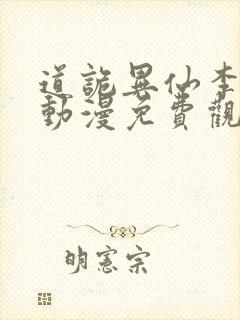 道詭異仙李
動漫免費觀
明憲宗